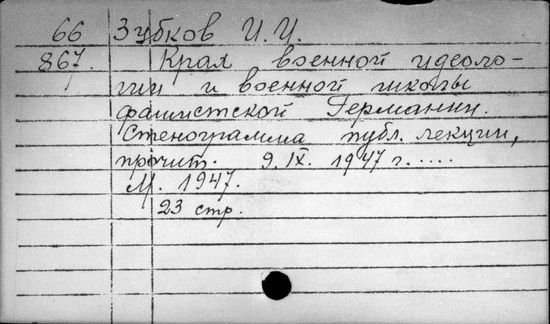 66 Зубков И. И.
867. Крах военной идеоло-
гии и военной школы
фашистской Германии.
Стенограмма публ. лекции,
прочит. 9. IX. 1947 г. .....
М. 1947.
23 стр.